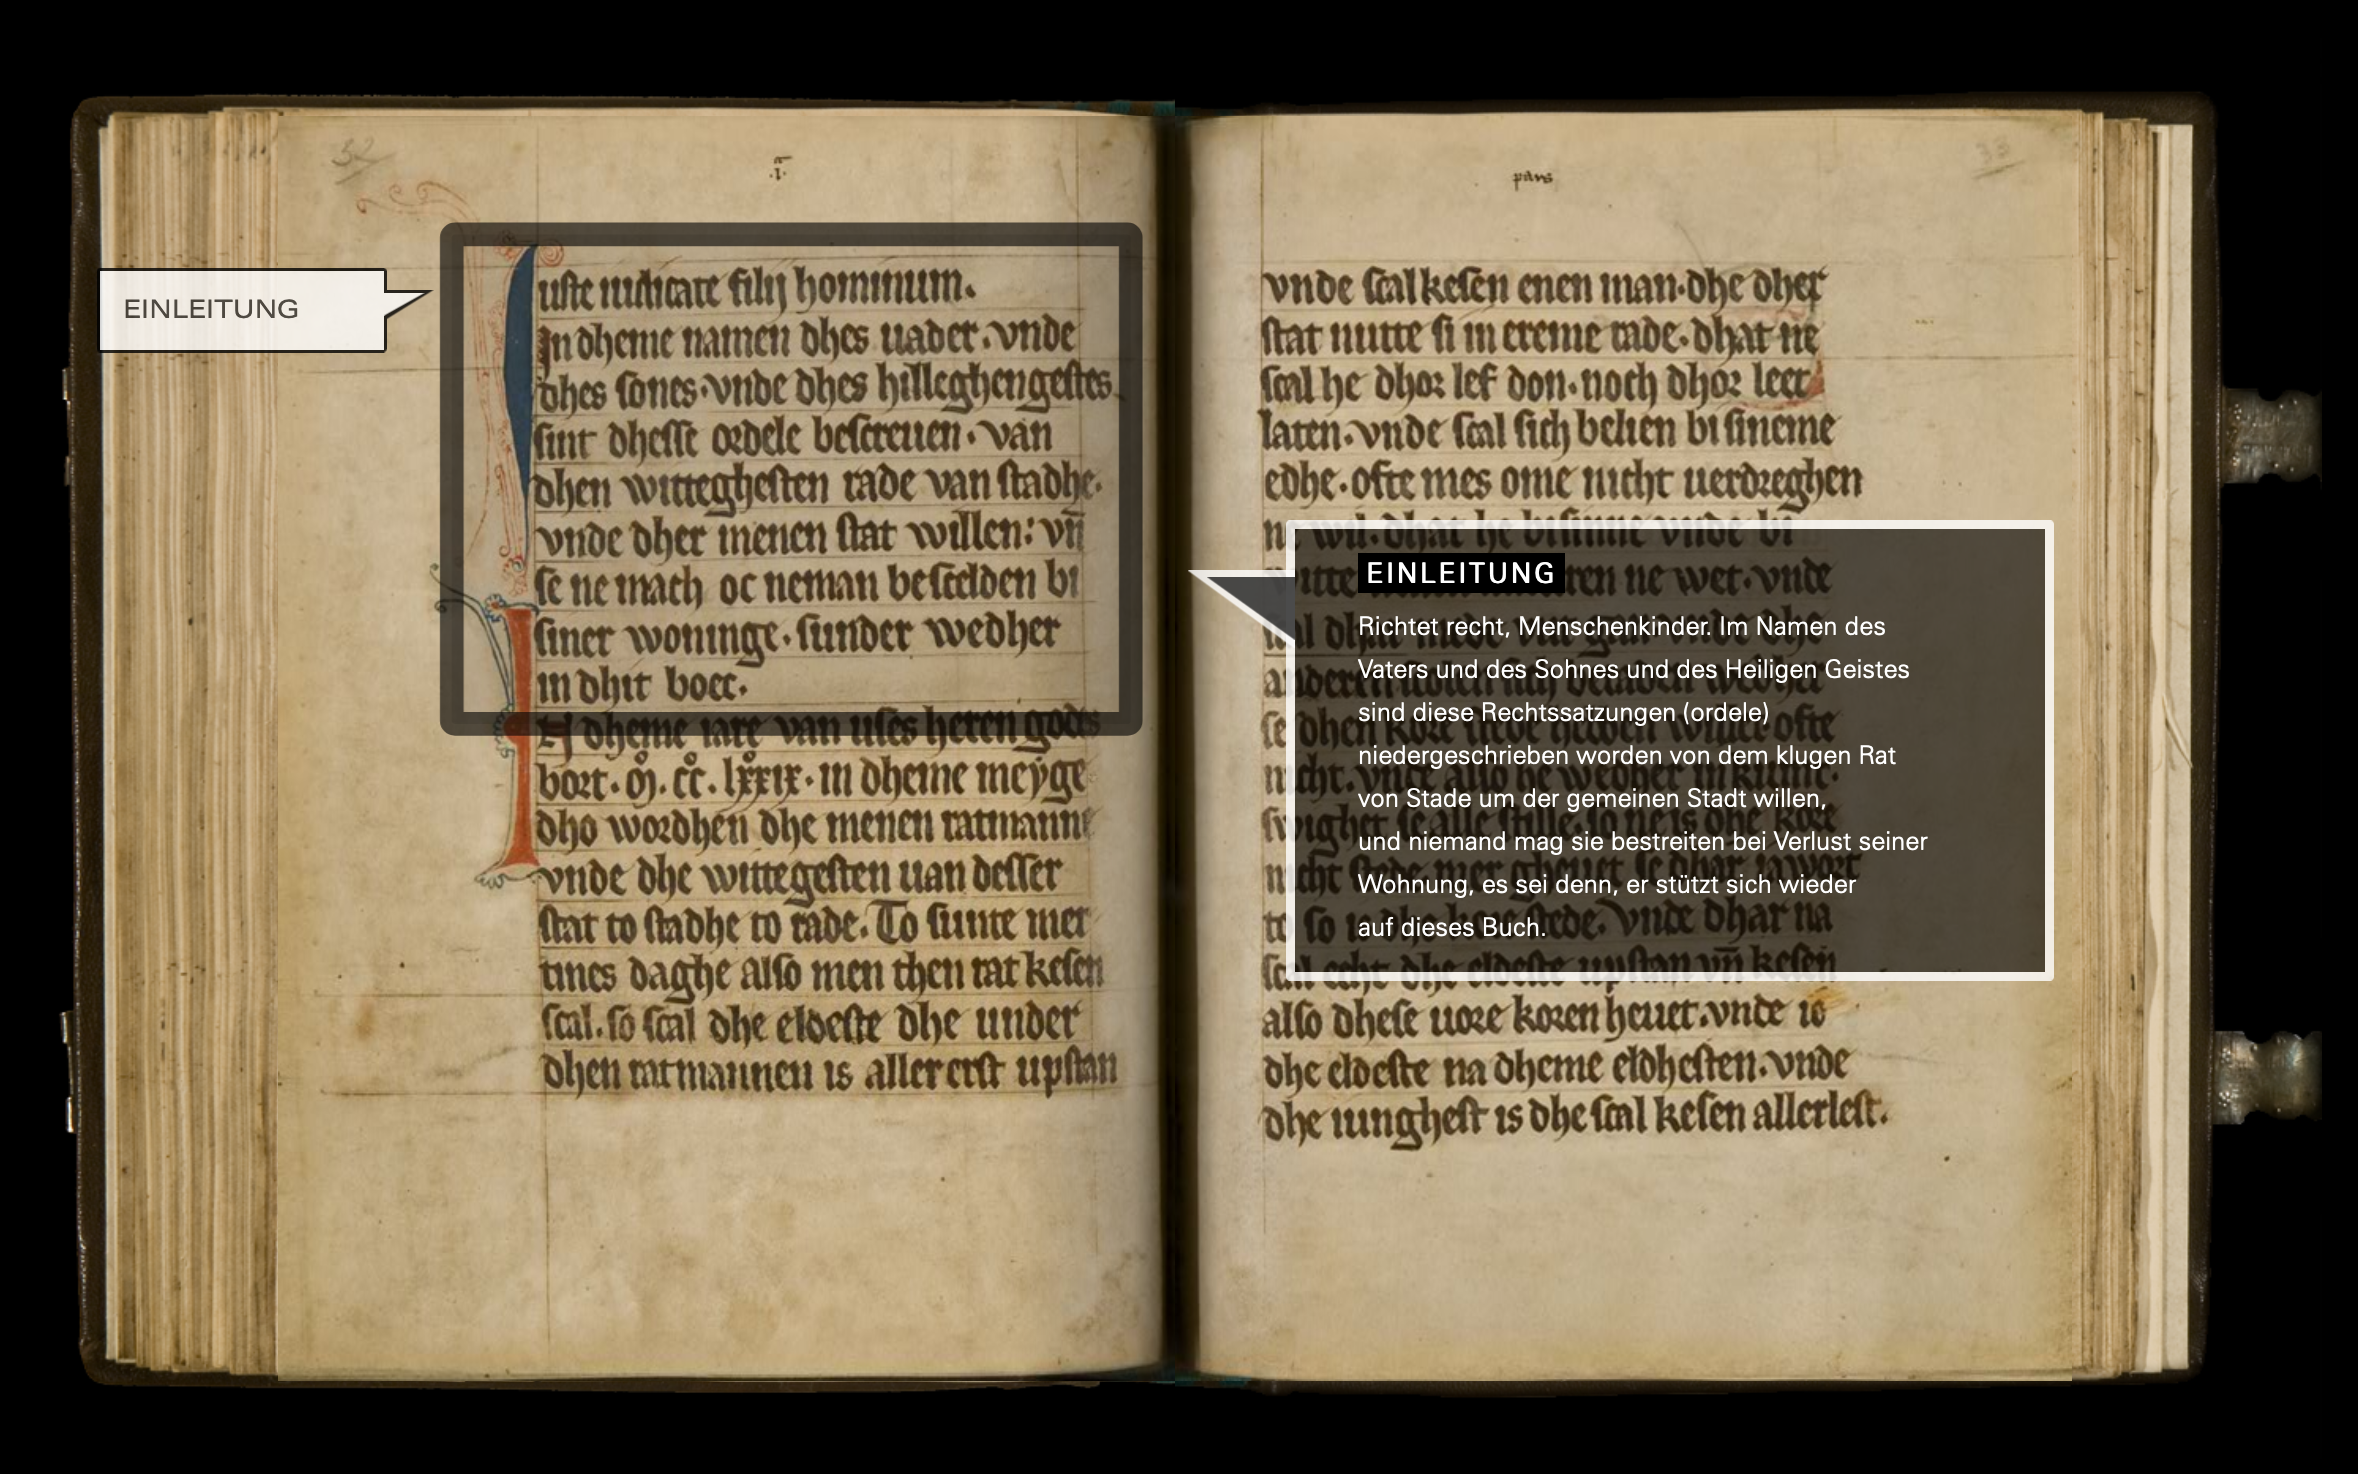 32
EINLEITUNG
Iuste iudicate filij hominum.
In dheme namen dhes uader. vnde
dhes sones. vnde dhes hilleghen gestes.
sint dhesse ordele bescreuen. van
dhen witteghesten rade van stadhe.
vnde dher menen stat willen: vn̄
se ne mach oc neman bescelden bi
siner woninge. sunder wedher
in dhit boec.
IN dheme iare van uses heren godes
bort. M. cc. lxxix. in dheme meyge
dho wordhen dhe menen ratmanne
vnde dhe wittegesten uan desser
stat to stadhe to rade. To sunte mer
tines daghe also men then rat kesen
scal. so scal dhe eldeste dhe under
dhen ratmannen is aller erst upstan
pars
33
vnde scal kesen enen man. dhe dher
stat nutte si in ereme rade. dhat ne
scal he dhor lef don. noch dhor leet
laten. vnde scal sich belien bi sineme
edhe. ofte mes ome nicht uerdreghen
ne wil. dhat he bi sinne vnde bi
ne wet. vnde
ofte
nicht.
swighet se alle stille. so ne is dhe kore
nicht stede.
vnde dhar na
scal echt dhe eldeste upstan vn̄ kesen
also dhese uore koren heuet. vnde io
dhe eldeste na dheme eldhesten. vnde
dhe iunghest is dhe scal kesen allerlest.
EINLEITUNG
Richtet recht, Menschenkinder. Im Namen des
Vaters und des Sohnes und des Heiligen Geistes
sind diese Rechtssatzungen (ordele)
niedergeschrieben worden von dem klugen Rat
von Stade um der gemeinen Stadt willen,
und niemand mag sie bestreiten bei Verlust seiner
Wohnung, es sei denn, er stützt sich wieder
auf dieses Buch.